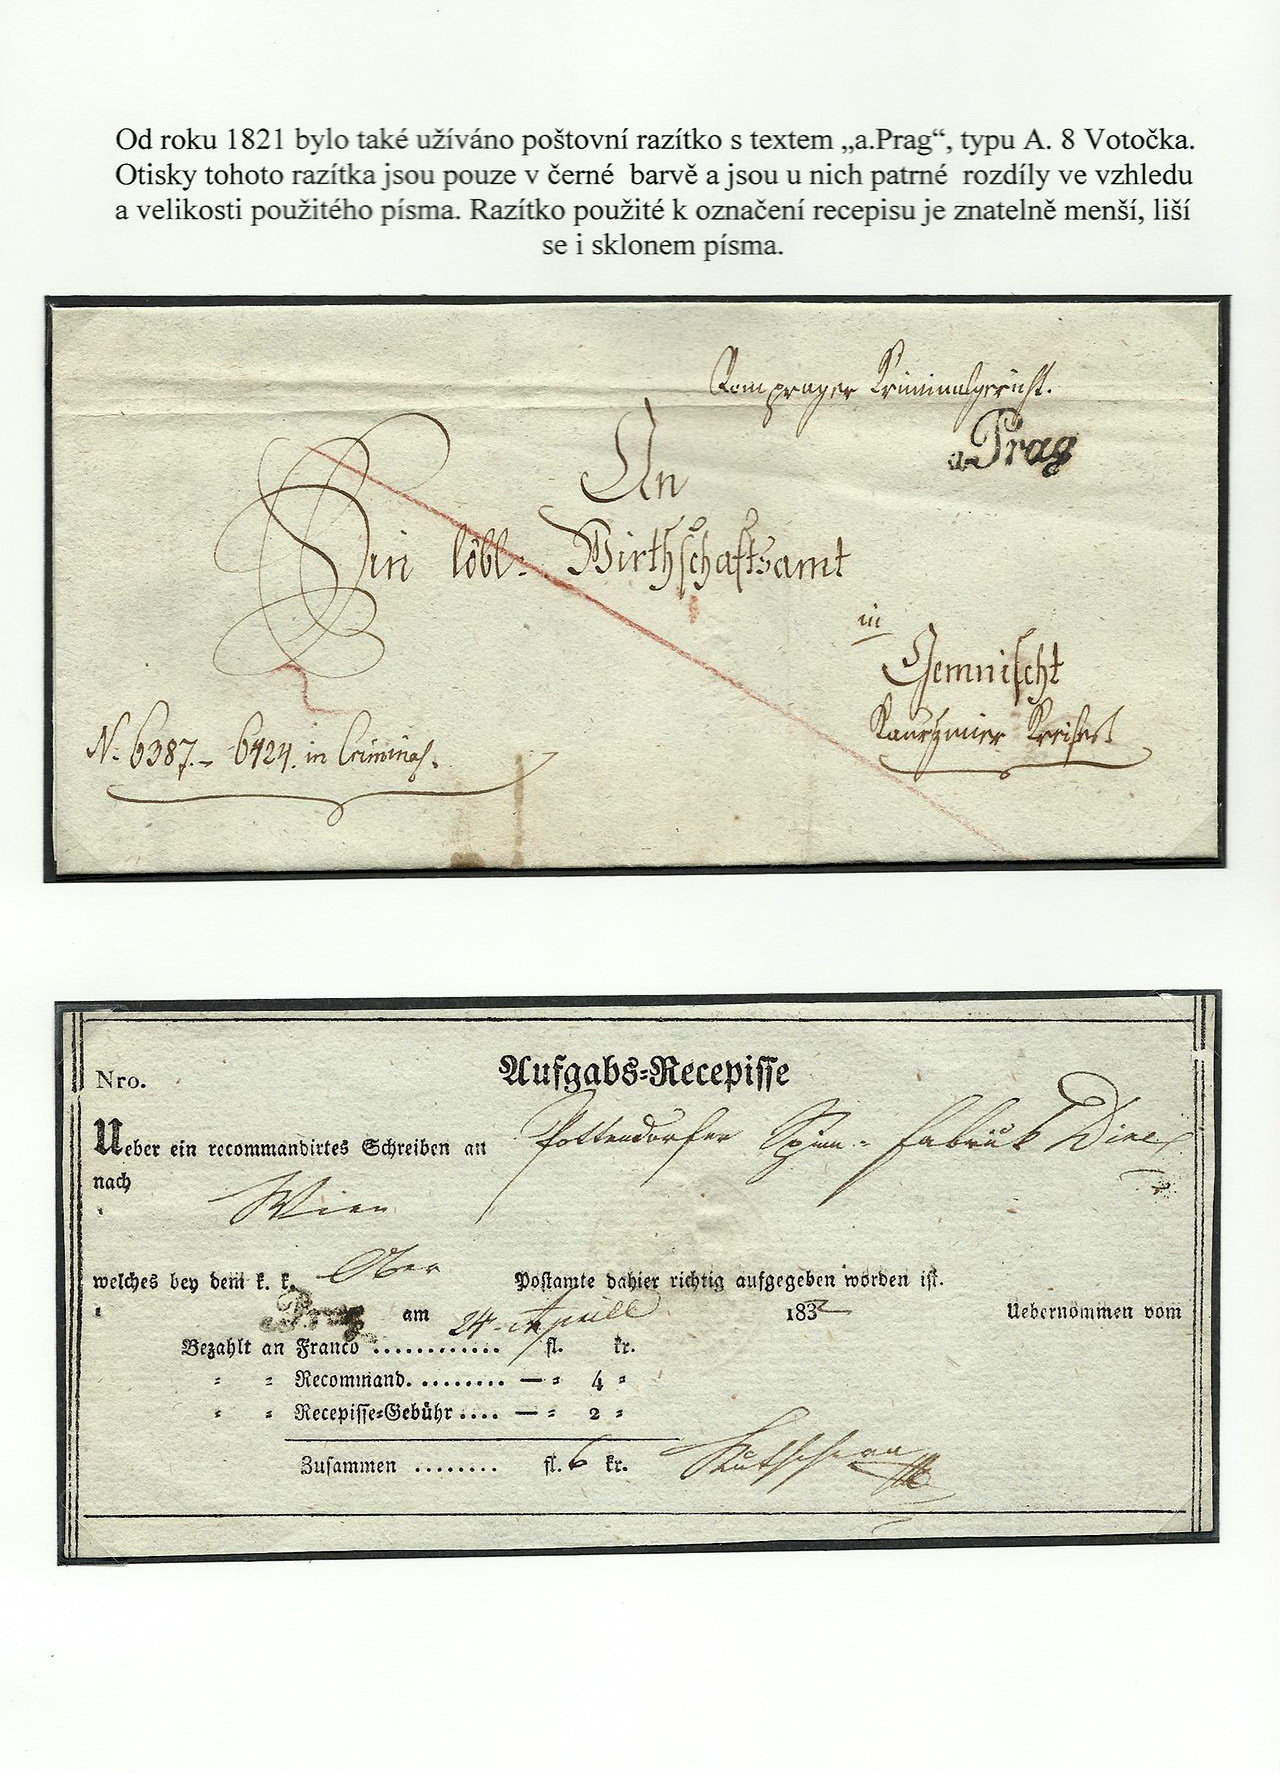 Od roku 1821 bylo také užíváno poštovní razítko s textem „a.Prag“, typu A. 8 Votočka.
Otisky tohoto razítka jsou pouze v černé barvě a jsou u nich patrné rozdíly ve vzhledu
a velikosti použitého písma. Razítko použité k označení recepisu je znatelně menší, liší
se i sklonem písma.
prager Kriminalgericht.
a.Prag
An
Ein löbl: Wirthschaftsamt
in
Gemnischt
Kaurzimer Kreises
N: 6387.- 6424. in Criminal.
Aufgabs-Recepisse
Nro.
Ueber ein recommandirtes Schreiben an Pottendorfer Spinn-Fabrik
nach
Wien
welches bey dem k. k. Ober Postamte dahier richtig aufgegeben worden ist.
Prag am 24. April 1832 Uebernommen vom
Bezahlt an Franco ............ fl. kr.
" " Recommand. ......... — " 4 "
" " Recepisse-Gebühr .... — " 2 "
Zusammen ........ fl. 6 kr.